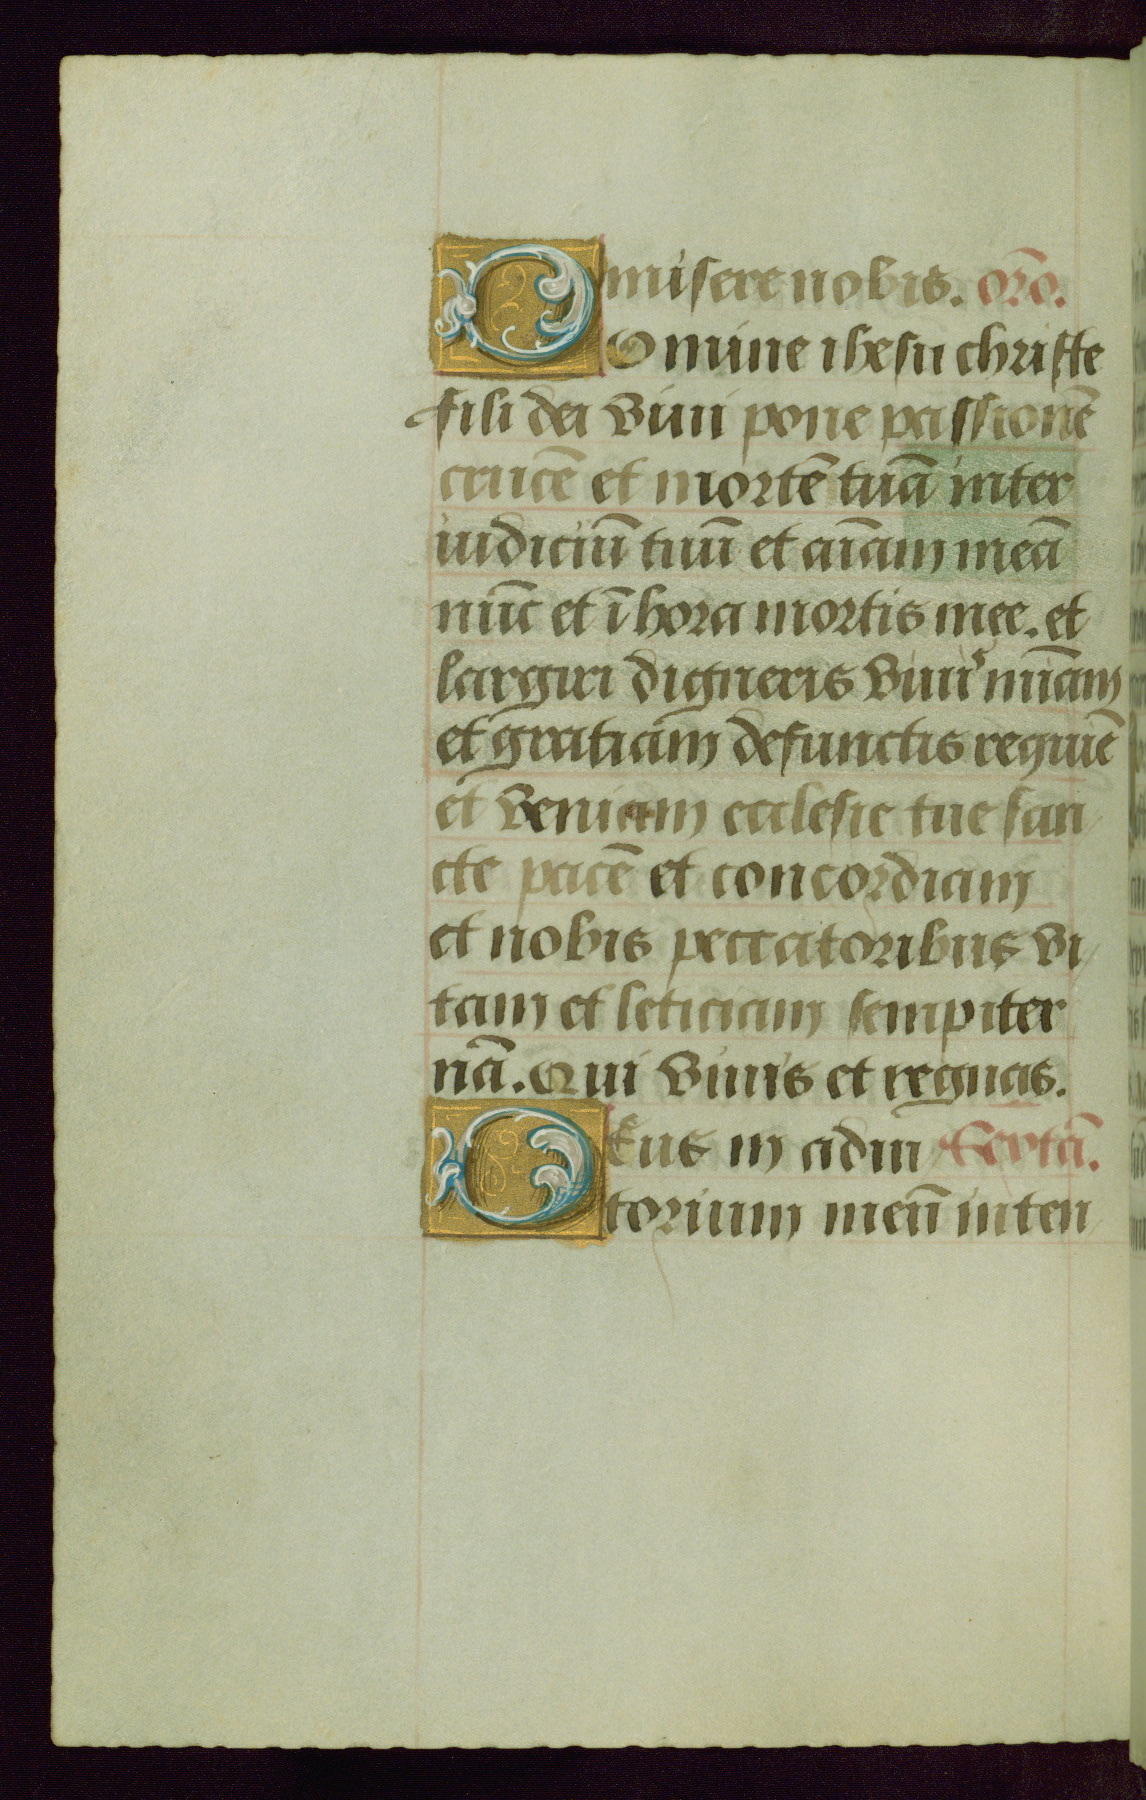 misere nobis. orō.
Domine ihesu christe
fili dei viui pone passionē
crucē et mortē tuā inter
iudiciū tuū et aīam meā
nūc et ī hora mortis mee. et
largiri digneris viuis mīam
et gratiam defunctis requiē
et veniam ecclesie tue san
cte pacē et concordiam
et nobis peccatoribus vi
tam et leticiam sempiter
nā. Qui viuis et regnas.
Deus in adiu
torium meū inten